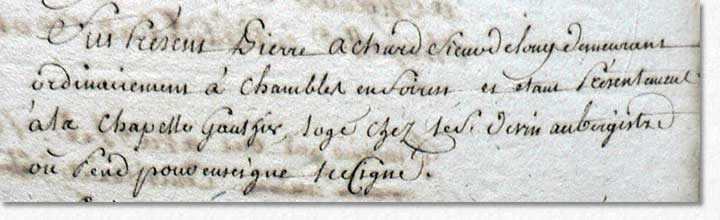 Fut Présent Pierre achard Sieur de louy demeurant
ordinairement á Chambles en forest et étant Présentement
á la Chapelle Gauthier, logé chéz le Sr. devin aubergiste
où Pend pour enseigne le Cigne.